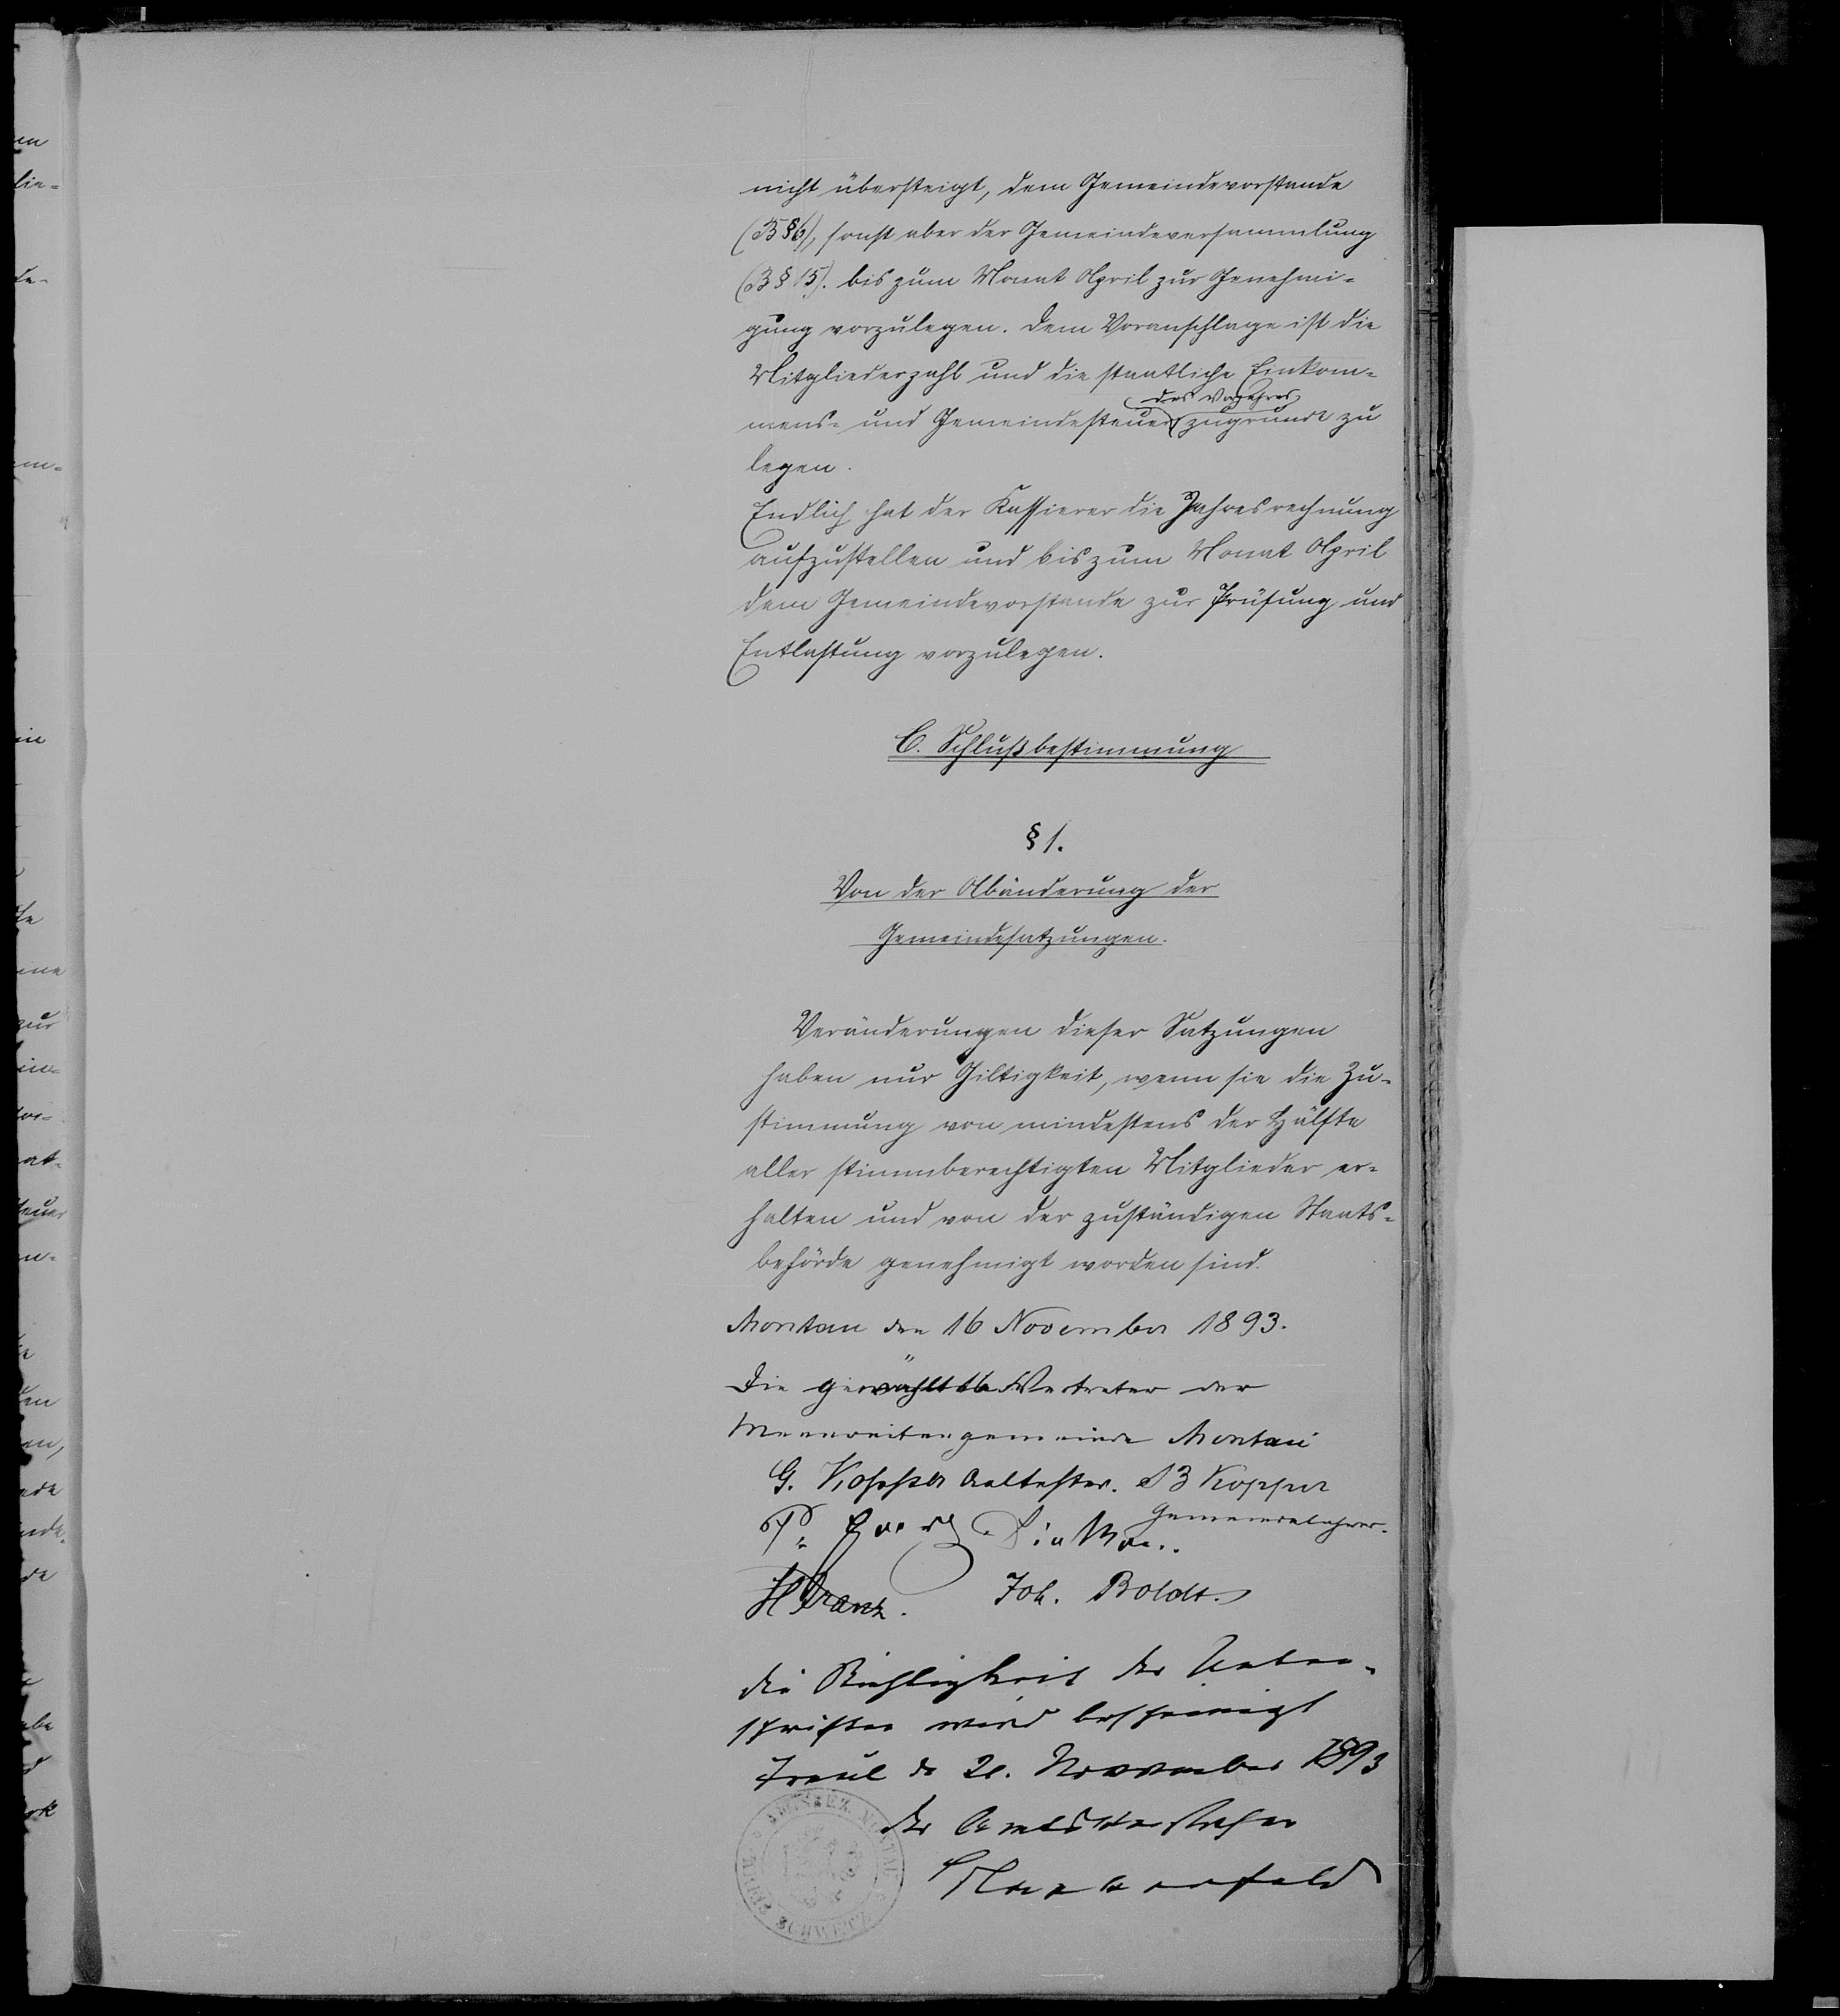 nicht übersteigt, dem Gemeindevorstande
(B § 6), sonst aber der Gemeindeversammlung
(B § 15). bis zum Monat April zur Genehmi-
gung vorzulegen. Dem Voranschlage ist die
Mitgliederzahl und die staatliche Einkom-
des Vorjahres
mens- und Gemeindesteuer zugrunde zu
legen.
Endlich hat der Kassierer die Jahresrechnung
aufzustellen und bis zum Monat April
dem Gemeindevorstande zur Prüfung und
Entlastung vorzulegen.
C. Schlußbestimmung
§ 1.
Von der Abänderung der
Gemeindesatzungen.
Veränderungen dieser Satzungen
haben nur Giltigkeit, wenn sie die Zu-
stimmung von mindestens der Hälfte
aller stimmberechtigten Mitglieder er-
halten und von der zuständigen Staats-
behörde genehmigt worden sind.
Montau den 16 November 1893.
Die gewählten Vertreter der
Mennonitengemeinde Montau
G. Kopper Aeltester. B Kopper
Gemeindelehrer.
H Franz. Joh. Boldt.
die Richtigkeit der Unter-
schriften wird bescheinigt
Treul d 21. November 1893
der Amtsvorsteher
AMTSBEZ. MONTAU
KREIS SCHWETZ